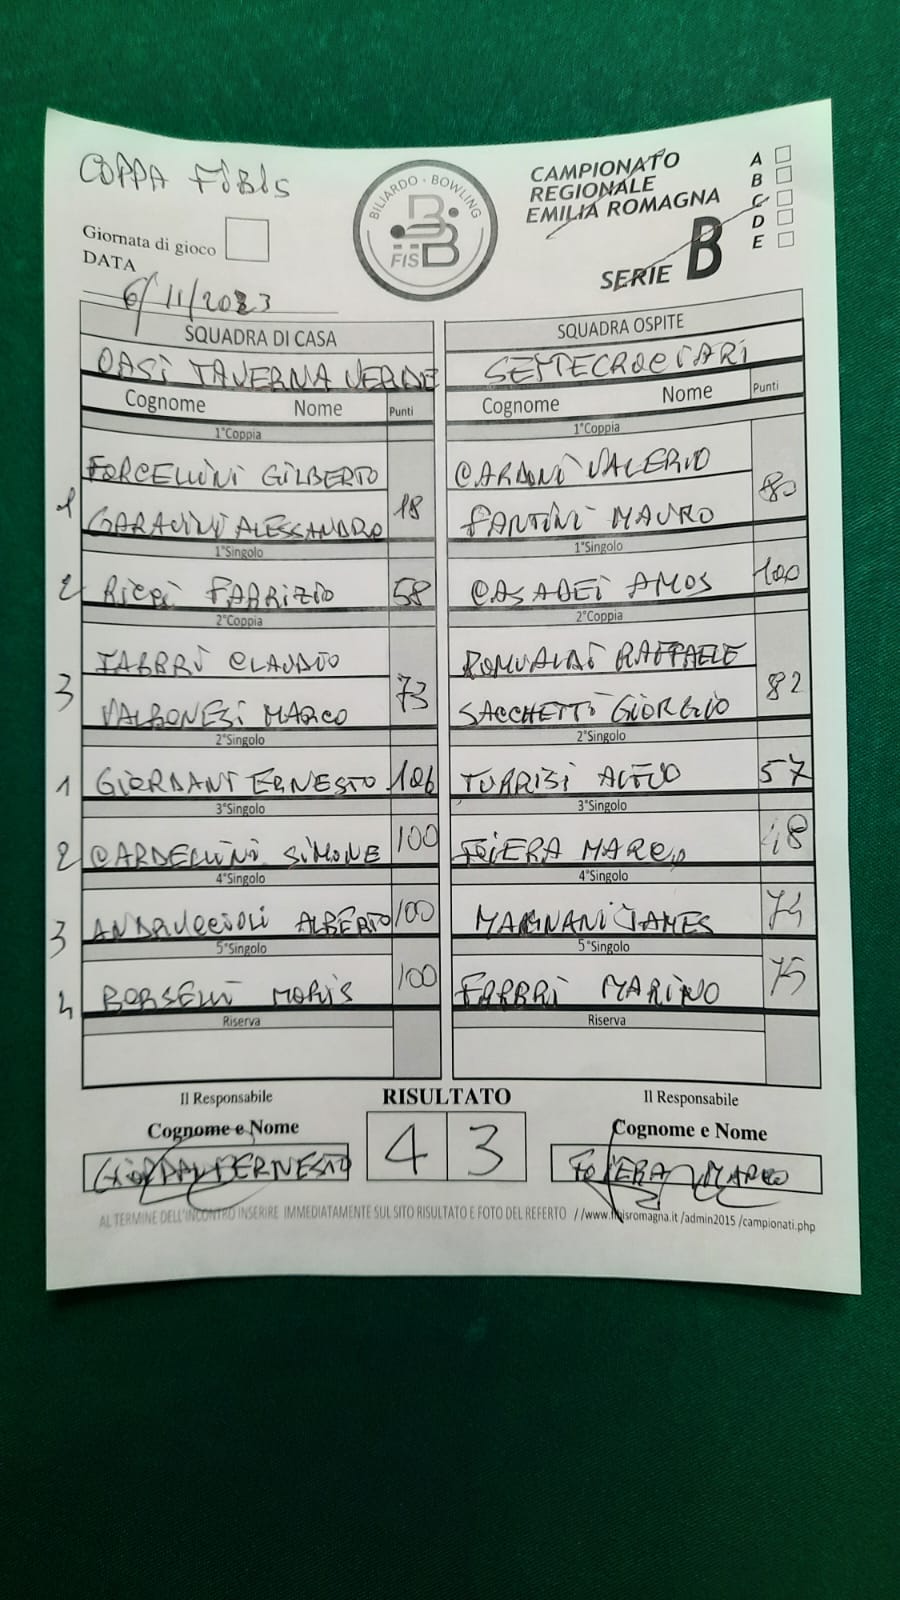 COPPA FIBIS
BILIARDO · BOWLING
FISBB
CAMPIONATO
REGIONALE
EMILIA ROMAGNA
SERIE B
A
B
C
D
E
Giornata di gioco
DATA
6/11/2023
SQUADRA DI CASA
SQUADRA OSPITE
OASI TAVERNA VERDE
SETTECROCIARI
Cognome Nome Punti
Cognome Nome Punti
1°Coppia
1°Coppia
1 FORCELLINI GILBERTO
CARDONI VALERIO
GARAVINI ALESSANDRO 18
FANTINI MAURO 80
1°Singolo
1°Singolo
2 RICCI FABRIZIO 58
CASADEI AMOS 100
2°Coppia
2°Coppia
3 FABBRI CLAUDIO
ROMUALDI RAFFAELE
VALBONESI MARCO 73
SACCHETTI GIORGIO 82
2°Singolo
2°Singolo
1 GIORDANI ERNESTO 106
TURRISI 57
3°Singolo
3°Singolo
2 CARDELLINI SIMONE 100
FEIERA MARCO 48
4°Singolo
4°Singolo
3 ANDRUCCIOLI ALBERTO 100
MAGNANI JAMES 74
5°Singolo
5°Singolo
4 BORSELLI MORIS 100
FABBRI MARINO 75
Riserva
Riserva
Il Responsabile
RISULTATO
Il Responsabile
Cognome e Nome
4 3
Cognome e Nome
GIORDANI ERNESTO
FEIERA MARCO
AL TERMINE DELL'INCONTRO INSERIRE IMMEDIATAMENTE SUL SITO RISULTATO E FOTO DEL REFERTO //www.fibisromagna.it /admin2015 /campionati.php